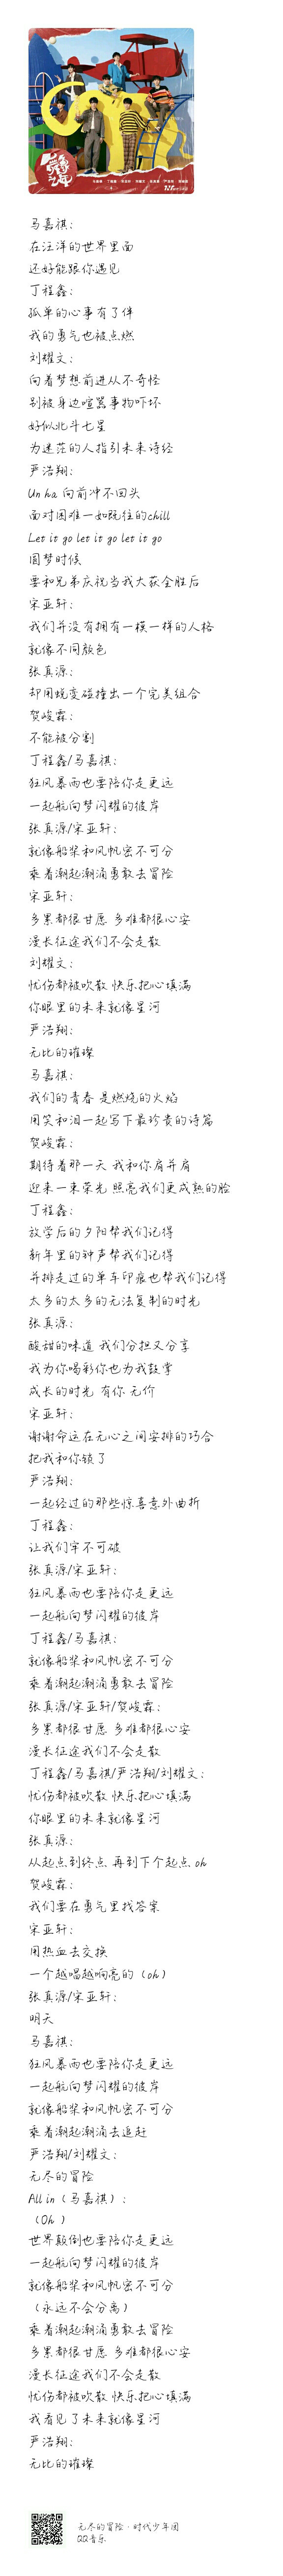 马嘉祺：
在汪洋的世界里面
还好能跟你遇见
丁程鑫：
孤单的心事有了伴
我的勇气也被点燃
刘耀文：
向着梦想前进从不奇怪
别被身边喧嚣事物吓坏
好似北斗七星
为迷茫的人指引未来诗经
严浩翔：
Un ha 向前冲不回头
面对困难一如既往的chill
Let it go let it go let it go
圆梦时候
要和兄弟庆祝当我大获全胜后
宋亚轩：
我们并没有拥有一模一样的人格
就像不同颜色
张真源：
却用蜕变碰撞出一个完美组合
贺峻霖：
不能被分割
丁程鑫/马嘉祺：
狂风暴雨也要陪你走更远
一起航向梦闪耀的彼岸
张真源/宋亚轩：
就像船桨和风帆密不可分
乘着潮起潮涌勇敢去冒险
宋亚轩：
多累都很甘愿 多难都很心安
漫长征途我们不会走散
刘耀文：
忧伤都被吹散 快乐把心填满
你眼里的未来就像星河
严浩翔：
无比的璀璨
马嘉祺：
我们的青春 是燃烧的火焰
用笑和泪一起写下最珍贵的诗篇
贺峻霖：
期待着那一天 我和你肩并肩
迎来一束荣光 照亮我们更成熟的脸
丁程鑫：
放学后的夕阳帮我们记得
新年里的钟声帮我们记得
并排走过的单车印痕也帮我们记得
太多的太多的无法复制的时光
张真源：
酸甜的味道 我们分担又分享
我为你喝彩你也为我鼓掌
成长的时光 有你 无价
宋亚轩：
谢谢命运在无心之间安排的巧合
把我和你锁了
严浩翔：
一起经过的那些惊喜意外曲折
丁程鑫：
让我们牢不可破
张真源/宋亚轩：
狂风暴雨也要陪你走更远
一起航向梦闪耀的彼岸
丁程鑫/马嘉祺：
就像船桨和风帆密不可分
乘着潮起潮涌勇敢去冒险
张真源/宋亚轩/贺峻霖：
多累都很甘愿 多难都很心安
漫长征途我们不会走散
丁程鑫/马嘉祺/严浩翔/刘耀文：
忧伤都被吹散 快乐把心填满
你眼里的未来就像星河
张真源：
从起点到终点 再到下个起点 oh
贺峻霖：
我们要在勇气里找答案
宋亚轩：
用热血去交换
一个越唱越响亮的（oh）
张真源/宋亚轩：
明天
马嘉祺：
狂风暴雨也要陪你走更远
一起航向梦闪耀的彼岸
就像船桨和风帆密不可分
乘着潮起潮涌去追赶
严浩翔/刘耀文：
无尽的冒险
All in（马嘉祺）：
（Oh ）
世界颠倒也要陪你走更远
一起航向梦闪耀的彼岸
就像船桨和风帆密不可分
（永远不会分离）
乘着潮起潮涌勇敢去冒险
多累都很甘愿 多难都很心安
漫长征途我们不会走散
忧伤都被吹散 快乐把心填满
我看见了未来就像星河
严浩翔：
无比的璀璨
无尽的冒险 · 时代少年团
QQ音乐